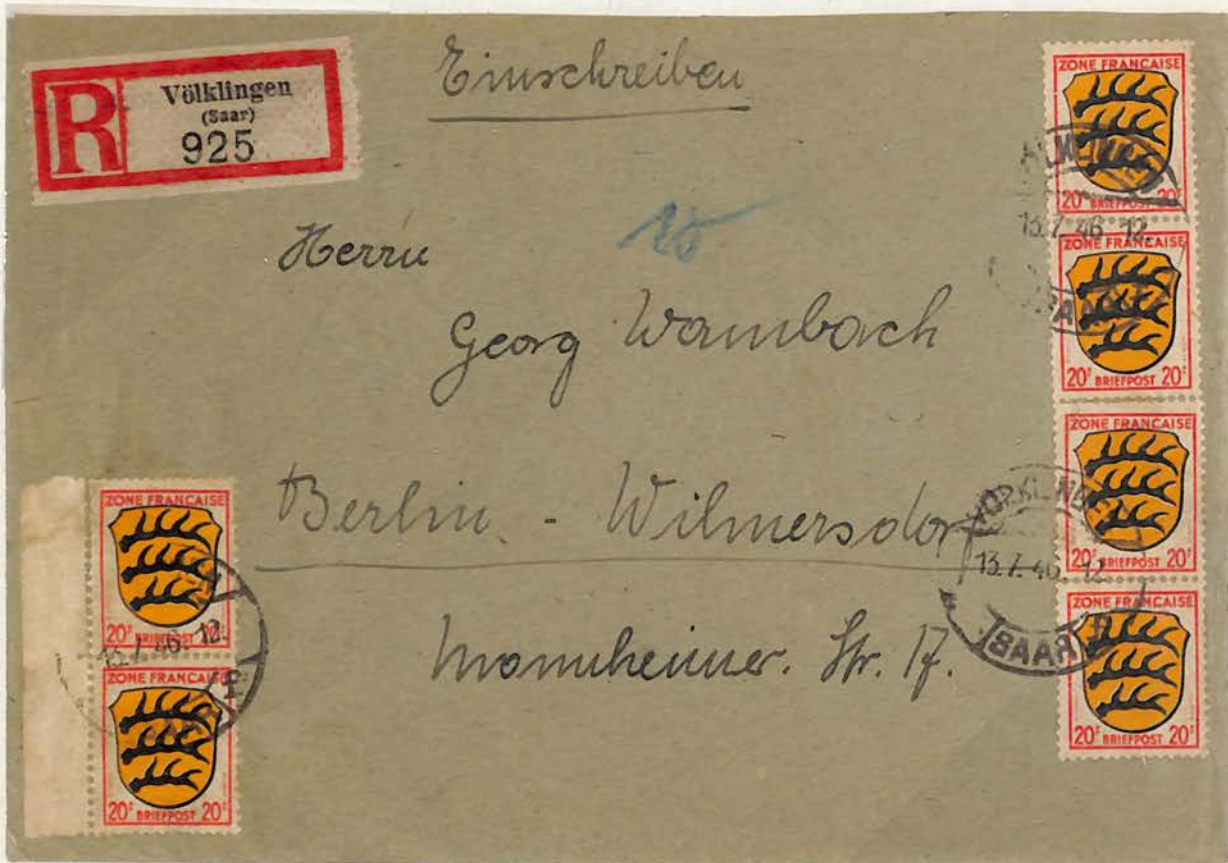 Einschreiben
R
Völklingen
(Saar)
925
Herrn
Georg Wambach
Berlin - Wilmersdorf
Mannheimer. Str. 17.
ZONE FRANCAISE
20F BRIEFPOST 20F
13.7.46 12.
ZONE FRANCAISE
20F BRIEFPOST 20F
ZONE FRANCAISE
20F BRIEFPOST 20F
13.7.46 12.
ZONE FRANCAISE
(SAAR)
20F BRIEFPOST 20F
ZONE FRANCAISE
20F BRIEFPOST 20F
13.7.46. 12.
ZONE FRANCAISE
20F BRIEFPOST 20F